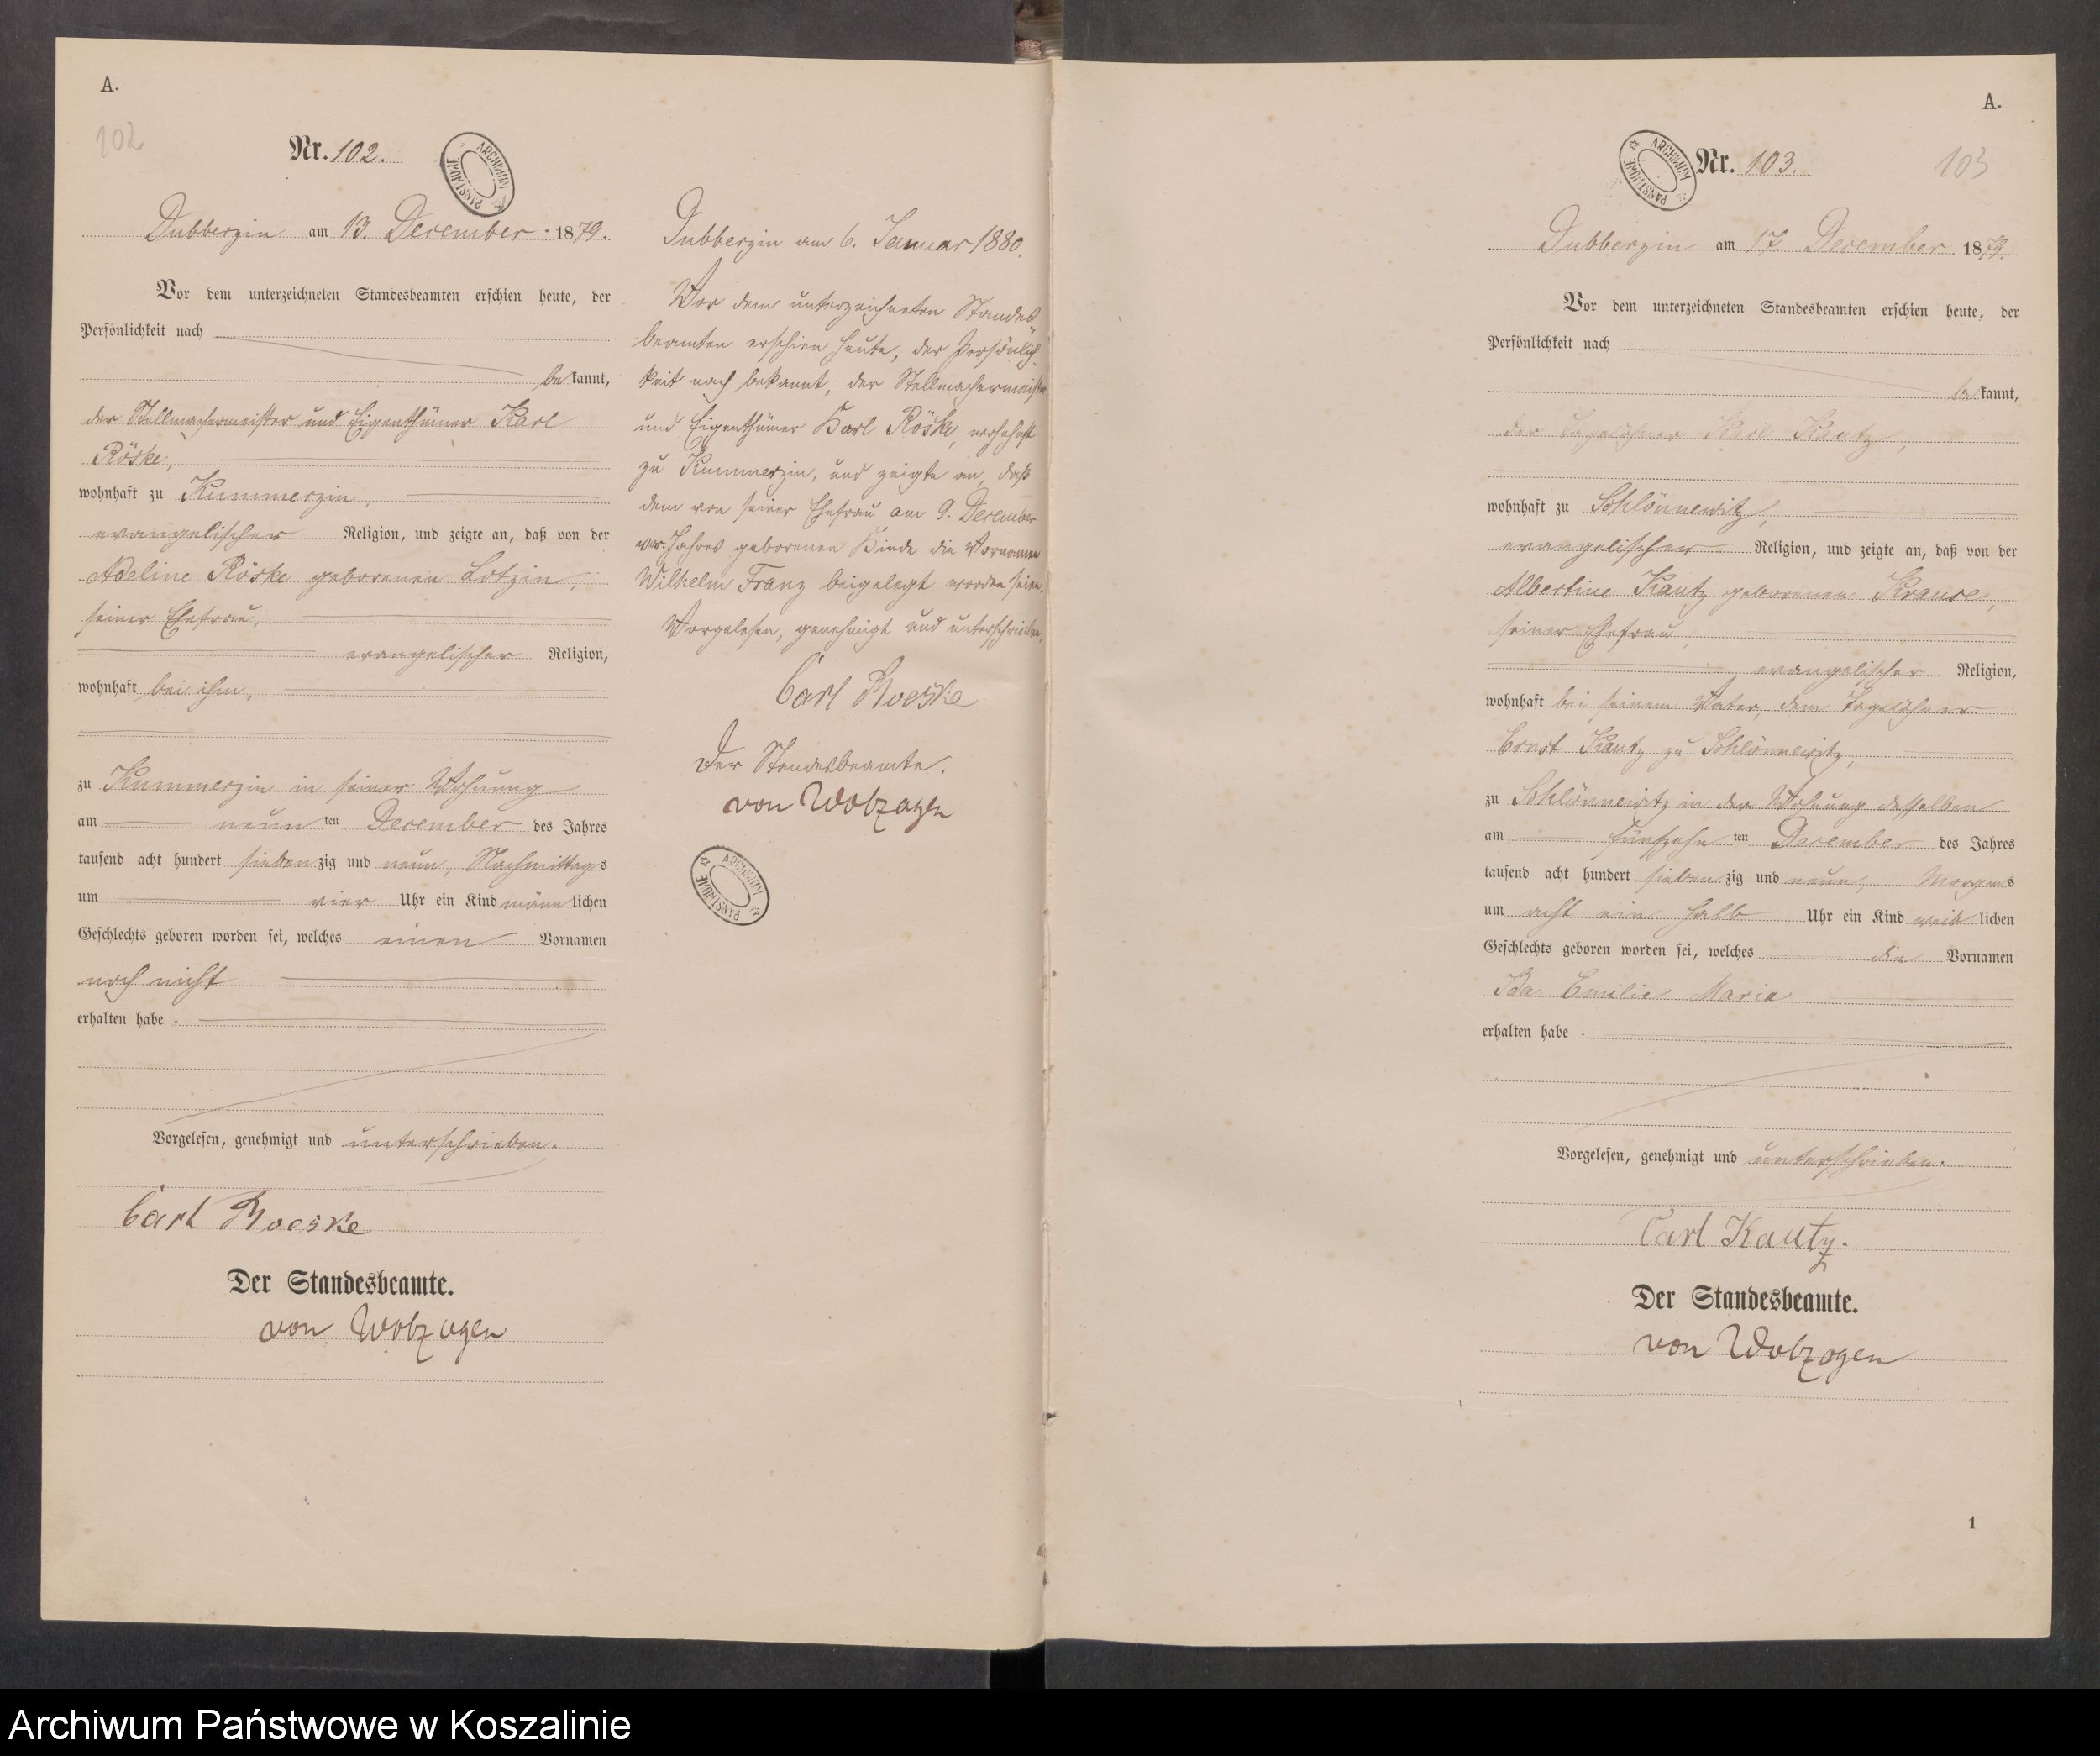 A.
102
Nr. 102.
ARCHIWUM PAŃSTWOWE
Dubberzin am 13. December 1879.
Vor dem unterzeichneten Standesbeamten erschien heute, der
Persönlichkeit nach
bekannt,
der Stellmachermeister und Eigenthümer Karl
Röske,
wohnhaft zu Kummerzin,
evangelischer Religion, und zeigte an, daß von der
Adeline Röske geborenen Lotzin,
seiner Ehefrau,
evangelischer Religion,
wohnhaft bei ihm,
zu Kummerzin in seiner Wohnung
am neunten December des Jahres
tausend acht hundert siebenzig und neun, Nachmittags
um vier Uhr ein Kind männlichen
Geschlechts geboren worden sei, welches einen Vornamen
noch nicht
erhalten habe.
Vorgelesen, genehmigt und unterschrieben.
Carl Roeske
Der Standesbeamte.
von Wolzogen
Dubberzin am 6. Januar 1880.
Vor dem unterzeichneten Standes
beamten erschien heute, der Persönlich
keit nach bekannt, der Stellmachermeister
und Eigenthümer Karl Röske, wohnhaft
zu Kummerzin, und zeigte an, daß
dem von seiner Ehefrau am 9. December
vor. Jahres geborenen Kinde die Vornamen
Wilhelm Franz beigelegt worden seien.
Vorgelesen, genehmigt und unterschrieben,
Carl Roeske
Der Standesbeamte.
von Wolzogen
ARCHIWUM PAŃSTWOWE
A.
ARCHIWUM PAŃSTWOWE
Nr. 103.
103
Dubberzin am 17. December 1879.
Vor dem unterzeichneten Standesbeamten erschien heute, der
Persönlichkeit nach
bekannt,
der Tagelöhner Karl Kautz,
wohnhaft zu Schlönnewitz,
evangelischer Religion, und zeigte an, daß von der
Albertine Kautz geborenen Krause,
seiner Ehefrau,
evangelischer Religion,
wohnhaft bei seinem Vater, dem Tagelöhner
Ernst Kautz zu Schlönnewitz,
zu Schlönnewitz in der Wohnung desselben
am fünfzehnten December des Jahres
tausend acht hundert siebenzig und neun, Morgens
um acht ein halb Uhr ein Kind weiblichen
Geschlechts geboren worden sei, welches die Vornamen
Ida Emilie Maria
erhalten habe.
Vorgelesen, genehmigt und unterschrieben.
Carl Kautz.
Der Standesbeamte.
von Wolzogen
1
Archiwum Państwowe w Koszalinie